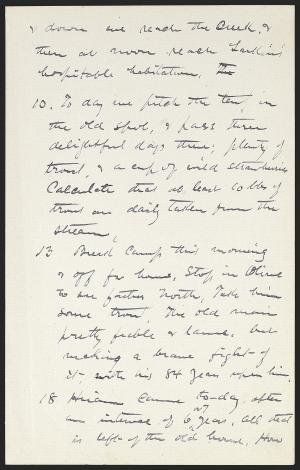 & down we reach the Creek, &
then at noon reach Larkin's
hospitable habitation. The
10. To day we pitch the tent, in
the old spot, & pass three
delightful days there; plenty of
trout, & a cup of wild strawberries
Calculate that at least 10 lbs of
trout are daily taken from the
stream,
13 Break Camp this morning
& off for home, Stop in Olive
to see father North, Take him
some trout, The old man
pretty feeble & lame, but
making a brave fight of
it, with his 84 years upon him,
18 Hiram came to-day after
an interval of 6 or 7 years, all that
is left of the old home, How